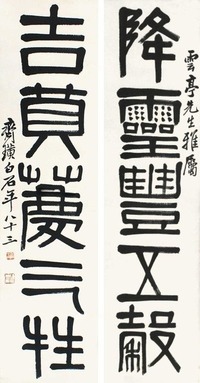 雲亭先生雅屬
降靈豐五穀
吉牲
齊璜白石年八十三